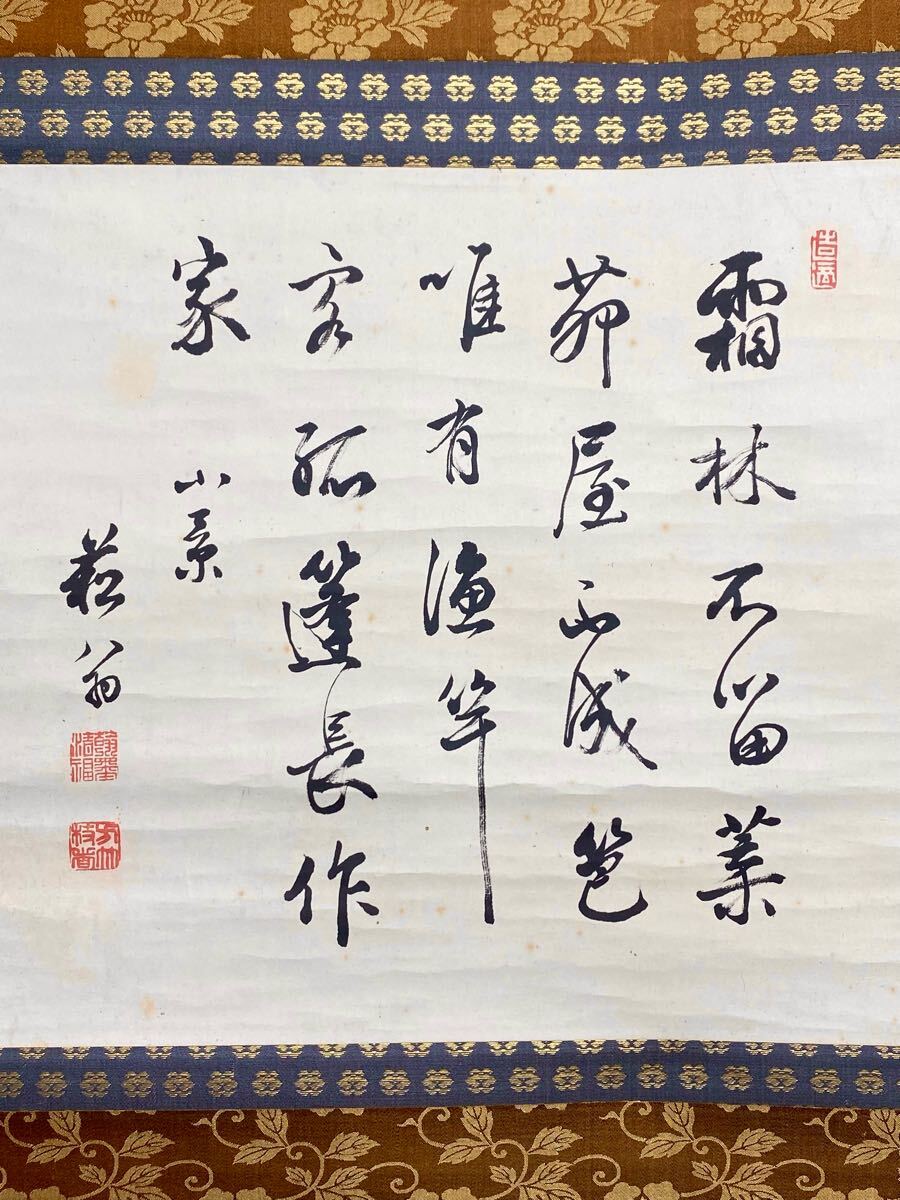 霜林不留葉
茆屋不成笆
唯有漁竿
客孤篷長作
家
小景
菘翁